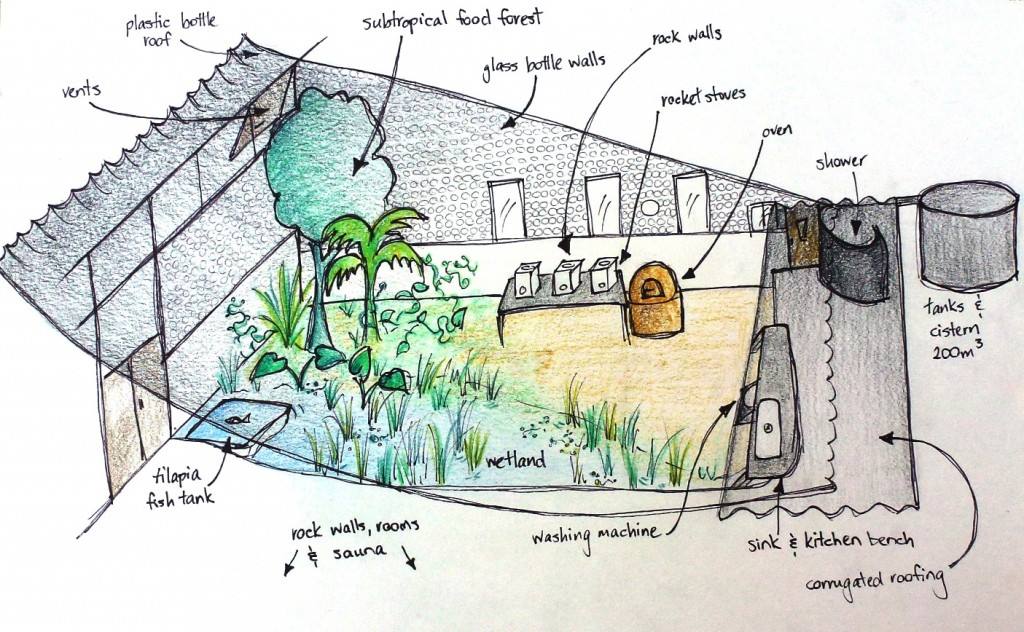 plastic bottle
roof
subtropical food forest
rock walls
glass bottle walls
vents
rocket stoves
oven
shower
tanks &
cistern
200m³
wetland
tilapia
fish tank
rock walls, rooms
& sauna
washing machine
sink & kitchen bench
corrugated roofing